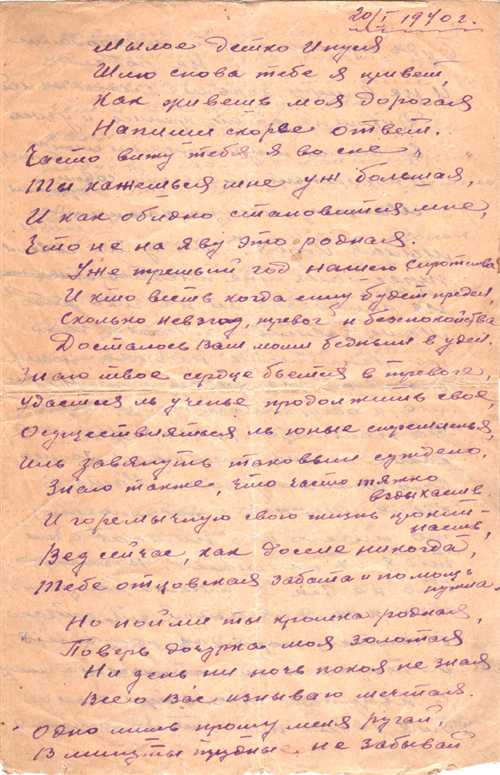 20/I 1940 г.
Милое детко Инуся
Шлю снова тебе я привет,
Как живешь моя дорогая
Напиши скорее ответ.
Часто вижу тебя я во сне,
Ты кажешься мне уж большая,
И как обидно становится мне,
Что не на яву это родная.
Уже третий год нашего сиротства
И кто весть когда ему будет предел
Сколько невзгод, тревог и безпокойства
Досталось Вам моим бедным в удел.
Знаю твое сердце бьется в тревоге,
Удастся ль ученье продолжить свое,
Осуществляться ль юные стремленья
Иль завянуть таковым суждено.
Знаю также, что часто тяжко
вздыхаешь
И горемычную свою жизнь
Вед сейчас, как доселе никогда,
Тебе отцовская забота и помощь
нужна.
Но пойми ты кромка родная,
Поверь дочурка моя золотая
Ни день ни ночь покоя не зная
Все о Вас изнываю мечтая.
Одно лишь прошу меня ругай,
В минуты трудные не забывай